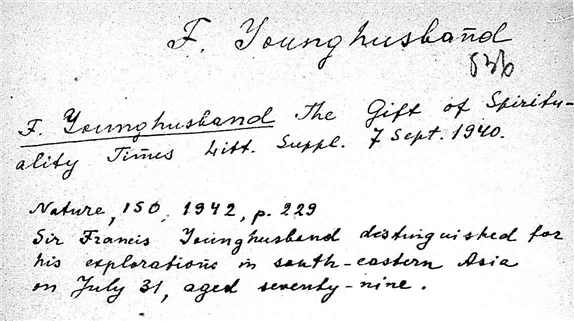 F. Younghusband
536
F. Younghusband The Gift of Spiritu-
ality Times Litt. Suppl. 7 Sept. 1940.
Nature, 150, 1942, p. 229
Sir Francis Younghusband distinguished for
his explorations in south-eastern Asia
on July 31, aged seventy-nine.